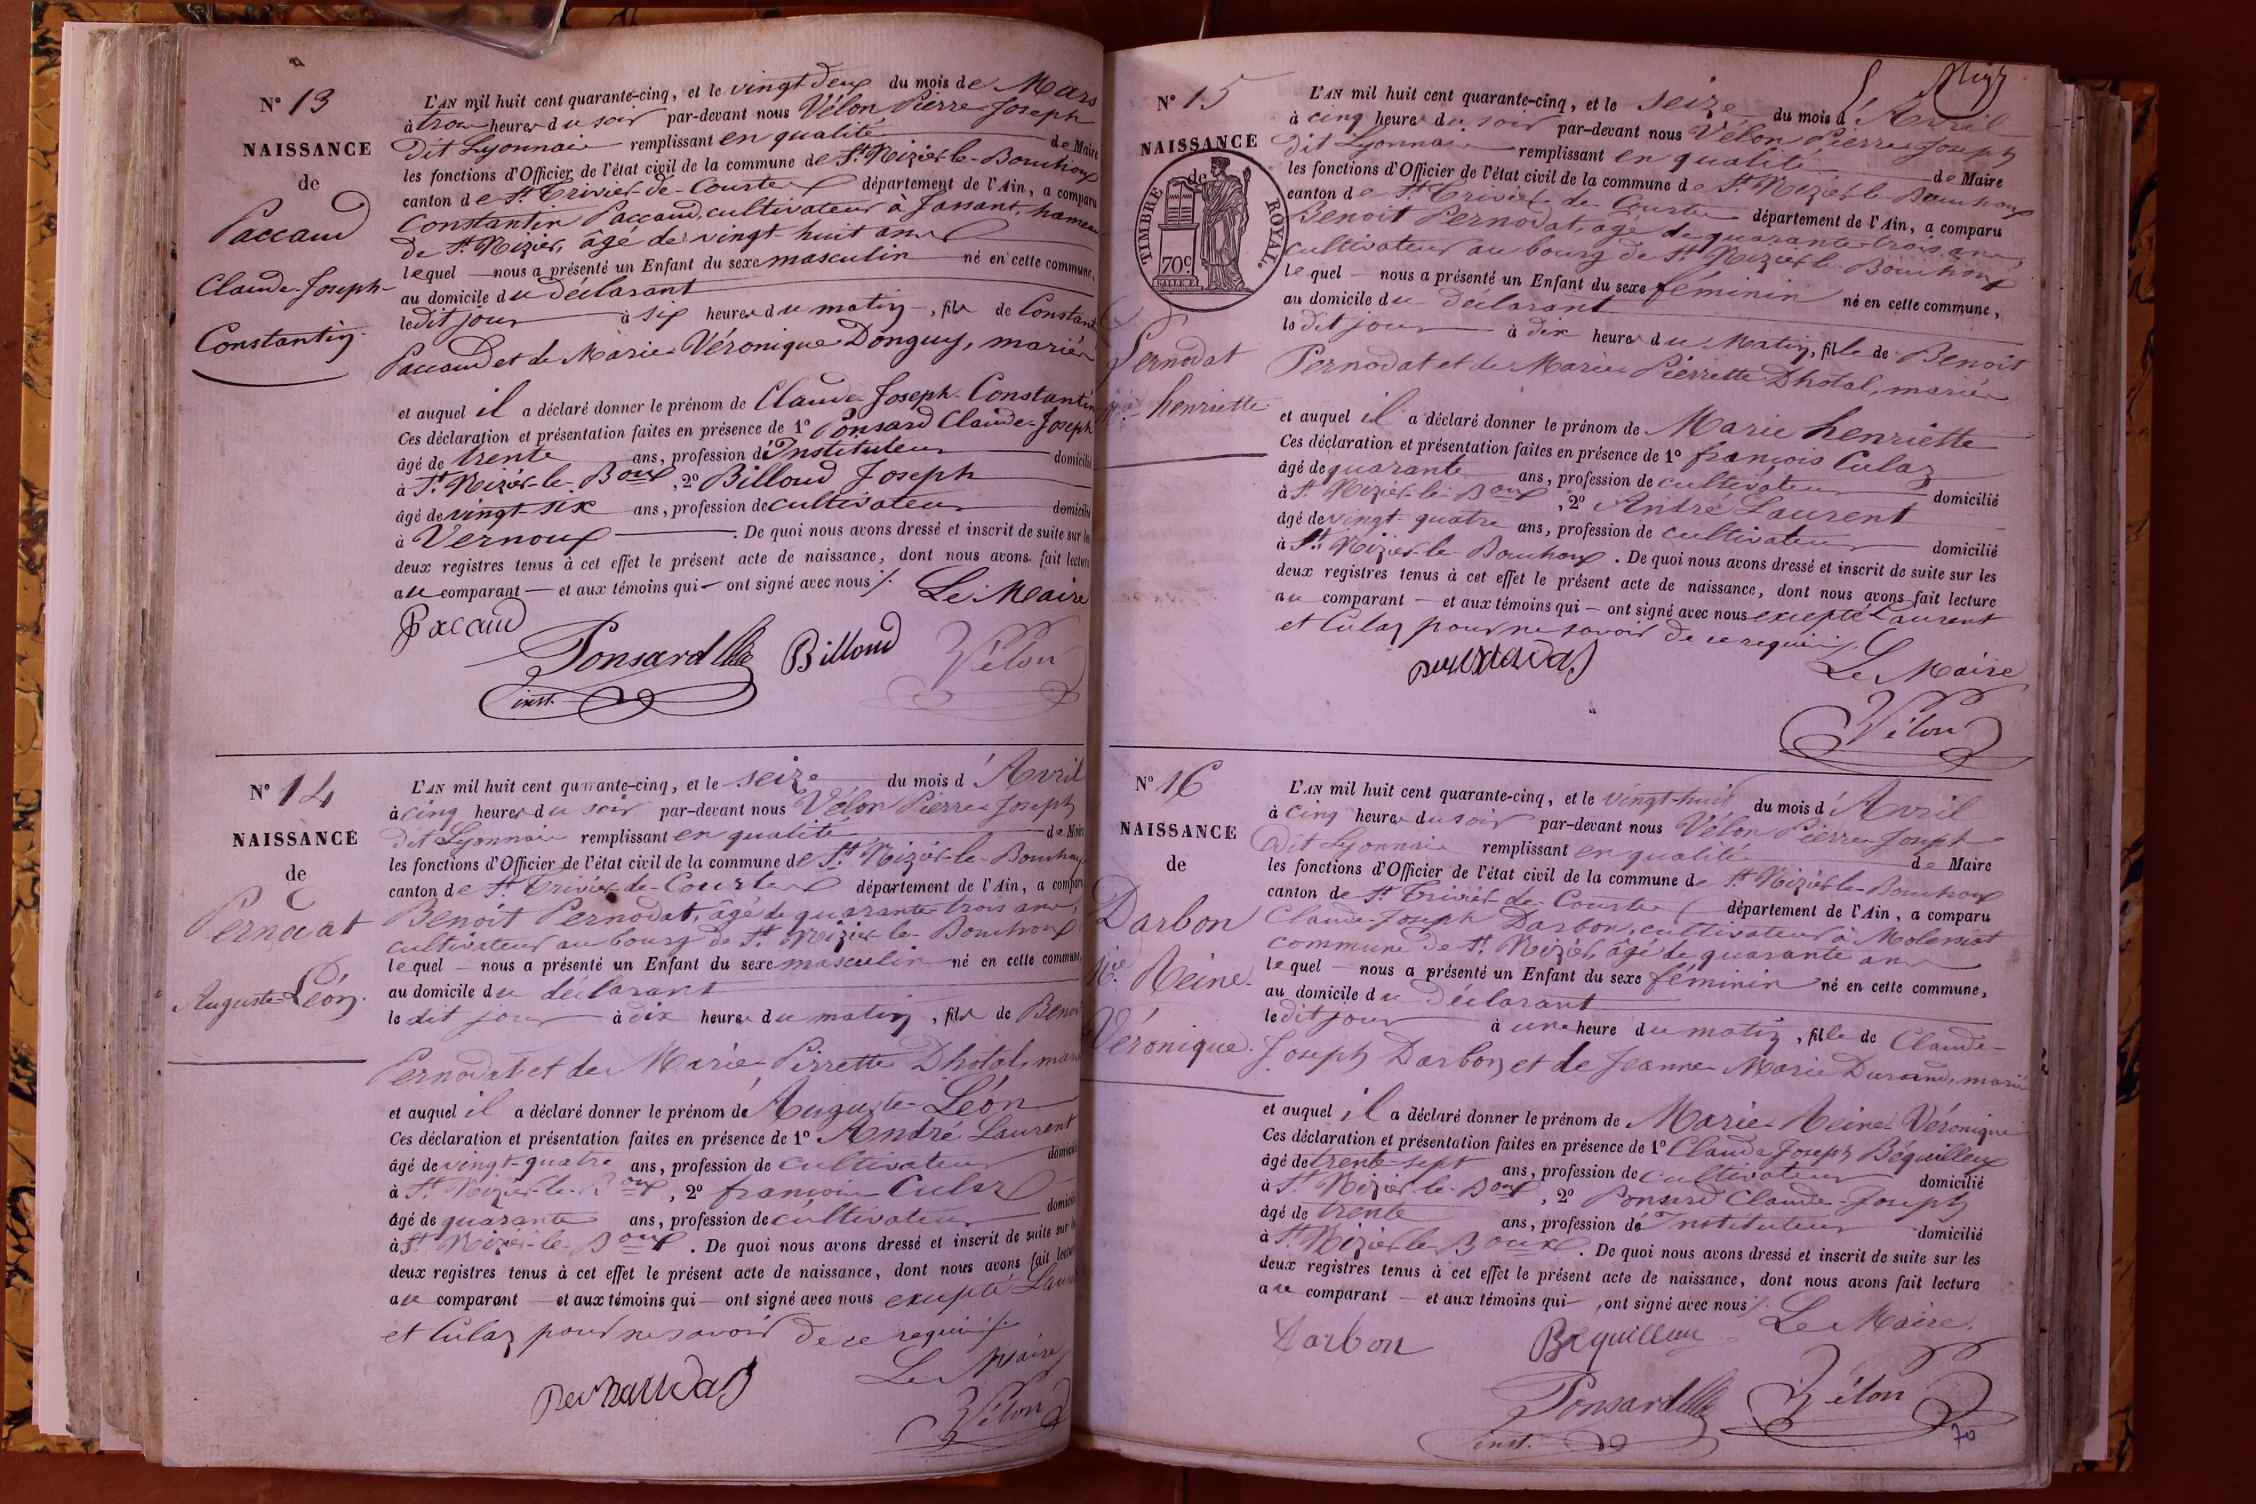 N° 13
NAISSANCE
de
Paccaud
Claude-Joseph-
Constantin.
L'AN mil huit cent quarante-cinq, et le vingt deux du mois de Mars
à trois heures du soir par-devant nous Vélon Pierre Joseph
dit Lyonnais remplissant en qualité de Maire
les fonctions d'Officier de l'état civil de la commune de St. Nizier-le-Bouchoux
canton de St. Trivier-de-Courtes département de l'Ain, a comparu
Constantin Paccaud, cultivateur à Jassant, hameau
de St. Nizier, âgé de vingt-huit ans
lequel nous a présenté un Enfant du sexe masculin né en cette commune,
au domicile du déclarant
ledit jour à six heures du matin, fils de Constant
Paccaud et de Marie Véronique Donguy, mariés
et auquel il a déclaré donner le prénom de Claude Joseph Constantin
Ces déclaration et présentation faites en présence de 1° Ponsard Claude-Joseph
âgé de trente ans, profession d'Instituteur domicilié
à St. Nizier-le-Boux, 2° Billoud Joseph
âgé de vingt-six ans, profession de cultivateur domicilié
à Vernoux. De quoi nous avons dressé et inscrit de suite sur les
deux registres tenus à cet effet le présent acte de naissance, dont nous avons fait lecture
au comparant et aux témoins qui ont signé avec nous Le Maire
Pacaud
Ponsard Billoud Vélon
inst.
N° 14
NAISSANCE
de
Pernodat
Auguste-Léon.
L'AN mil huit cent quarante-cinq, et le seize du mois d'Avril
à cinq heures du soir par-devant nous Vélon Pierre Joseph
dit Lyonnais remplissant en qualité de Maire
les fonctions d'Officier de l'état civil de la commune de St. Nizier-le-Bouchoux
canton de St. Trivier-de-Courtes département de l'Ain, a comparu
Benoit Pernodat, âgé de quarante trois ans,
cultivateur au bourg de St. Nizier-le-Bouchoux
lequel nous a présenté un Enfant du sexe masculin né en cette commune,
au domicile du déclarant
le dit jour à dix heures du matin, fils de Benoit
Pernodat et de Marie Pirrette Dhotal, mariés
et auquel il a déclaré donner le prénom de Auguste-Léon
Ces déclaration et présentation faites en présence de 1° André Laurent
âgé de vingt-quatre ans, profession de cultivateur domicilié
à St. Nizier-le-Boux, 2° françois Culaz
âgé de quarante ans, profession de cultivateur domicilié
à St. Nizier-le-Boux. De quoi nous avons dressé et inscrit de suite sur les
deux registres tenus à cet effet le présent acte de naissance, dont nous avons fait lecture
au comparant et aux témoins qui ont signé avec nous excepté Laurent
et Culaz pour ne savoir de ce requis
Le Maire
Vélon
N° 15
NAISSANCE
de
TIMBRE ROYAL.
70c.
Pernodat
Mie. henriette
L'AN mil huit cent quarante-cinq, et le seize du mois d'Avril
à cinq heures du soir par-devant nous Vélon Pierre Joseph
dit Lyonnais remplissant en qualité de Maire
les fonctions d'Officier de l'état civil de la commune de St. Nizier-le-Bouchoux
canton de St. Trivier-de-Courtes département de l'Ain, a comparu
Benoit Pernodat, âgé de quarante-trois ans,
cultivateur au bourg de St. Nizier-le-Bouchoux
lequel nous a présenté un Enfant du sexe féminin né en cette commune,
au domicile du déclarant
le dit jour à dix heures du Matin, fille de Benoit
Pernodat et de Marie Pierrette Dhotal, mariés
et auquel il a déclaré donner le prénom de Marie henriette
Ces déclaration et présentation faites en présence de 1° françois Culaz
âgé de quarante ans, profession de cultivateur domicilié
à St. Nizier-le-Boux, 2° André Laurent
âgé de vingt-quatre ans, profession de cultivateur domicilié
à St. Nizier-le-Bouchoux. De quoi nous avons dressé et inscrit de suite sur les
deux registres tenus à cet effet le présent acte de naissance, dont nous avons fait lecture
au comparant et aux témoins qui ont signé avec nous excepté Laurent
et Culaz pour ne savoir de ce requis
Le Maire
Vélon
N° 16
NAISSANCE
de
Darbon
Mie. Reine.
Véronique.
L'AN mil huit cent quarante-cinq, et le vingt-huit du mois d'Avril
à cinq heures du soir par-devant nous Vélon Pierre Joseph
Dit Lyonnais remplissant en qualité de Maire
les fonctions d'Officier de l'état civil de la commune de St. Nizier-le-Bouchoux
canton de St. Trivier de Courtes département de l'Ain, a comparu
Claude-Joseph Darbon, cultivateur à
commune de St. Nizier, âgé de quarante ans
lequel nous a présenté un Enfant du sexe féminin né en cette commune,
au domicile du Déclarant
ledit jour à une heure du matin, fille de Claude-
Joseph Darbon et de Jeanne Marie Durand, mariés
et auquel il a déclaré donner le prénom de Marie-Reine-Véronique
Ces déclaration et présentation faites en présence de 1° Claude Joseph Béquilleux
âgé de trente-sept ans, profession de cultivateur domicilié
à St. Nizier-le-Boux, 2° Ponsard Claude-Joseph
âgé de trente ans, profession d'Instituteur domicilié
à St. Nizier-le-Boux. De quoi nous avons dressé et inscrit de suite sur les
deux registres tenus à cet effet le présent acte de naissance, dont nous avons fait lecture
au comparant et aux témoins qui ont signé avec nous Le Maire.
Darbon Bequilleux
Ponsard Vélon
inst.
70